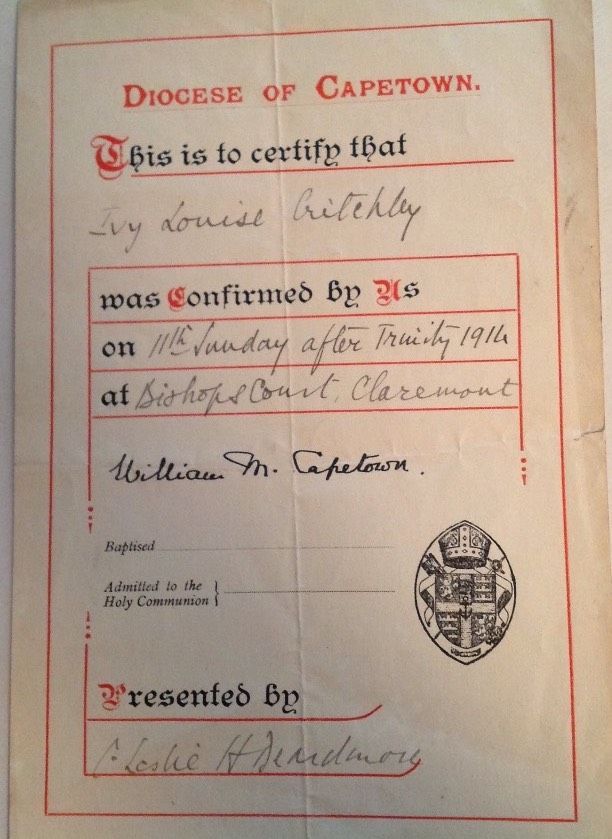 DIOCESE OF CAPETOWN.
This is to certify that
Ivy Louise Critchley
was Confirmed by Us
on 11th Sunday after Trinity 1914
at Bishops Court, Claremont
William M. Capetown.
Baptised
Admitted to the
Holy Communion }
Presented by
Leslie H Beardmore